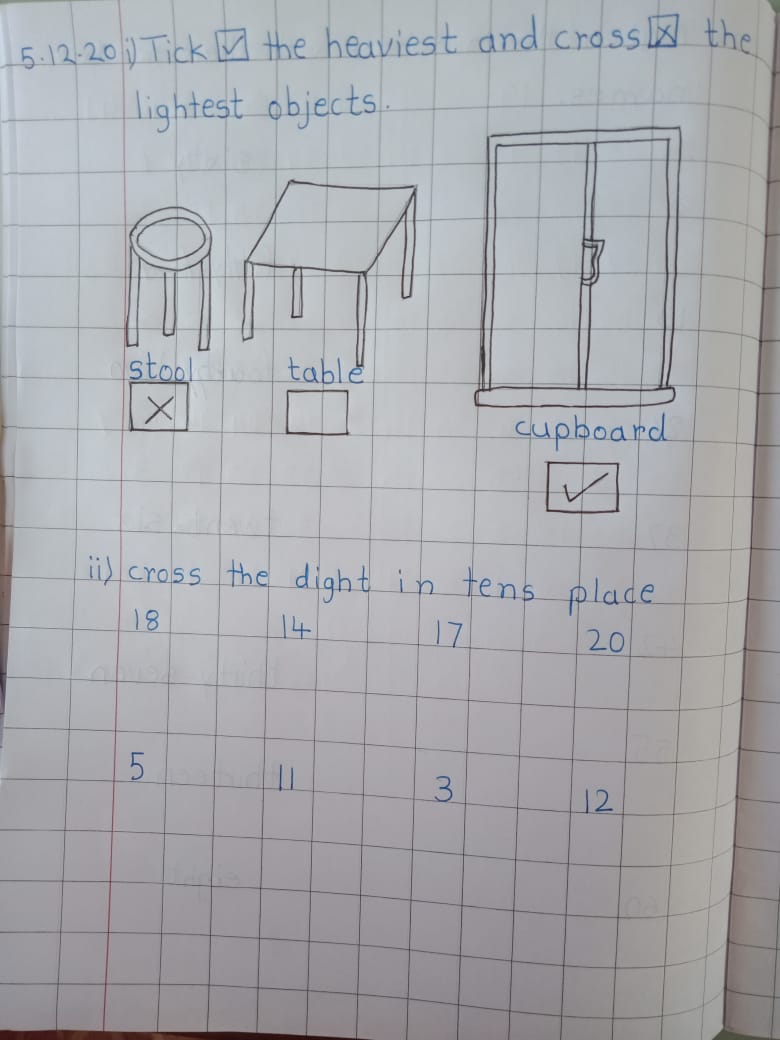 5.12.20 i) Tick ☑ the heaviest and cross ☒ the
lightest objects.
stool table
cupboard
ii) cross the dight in tens place
18 14 17 20
5 11 3 12